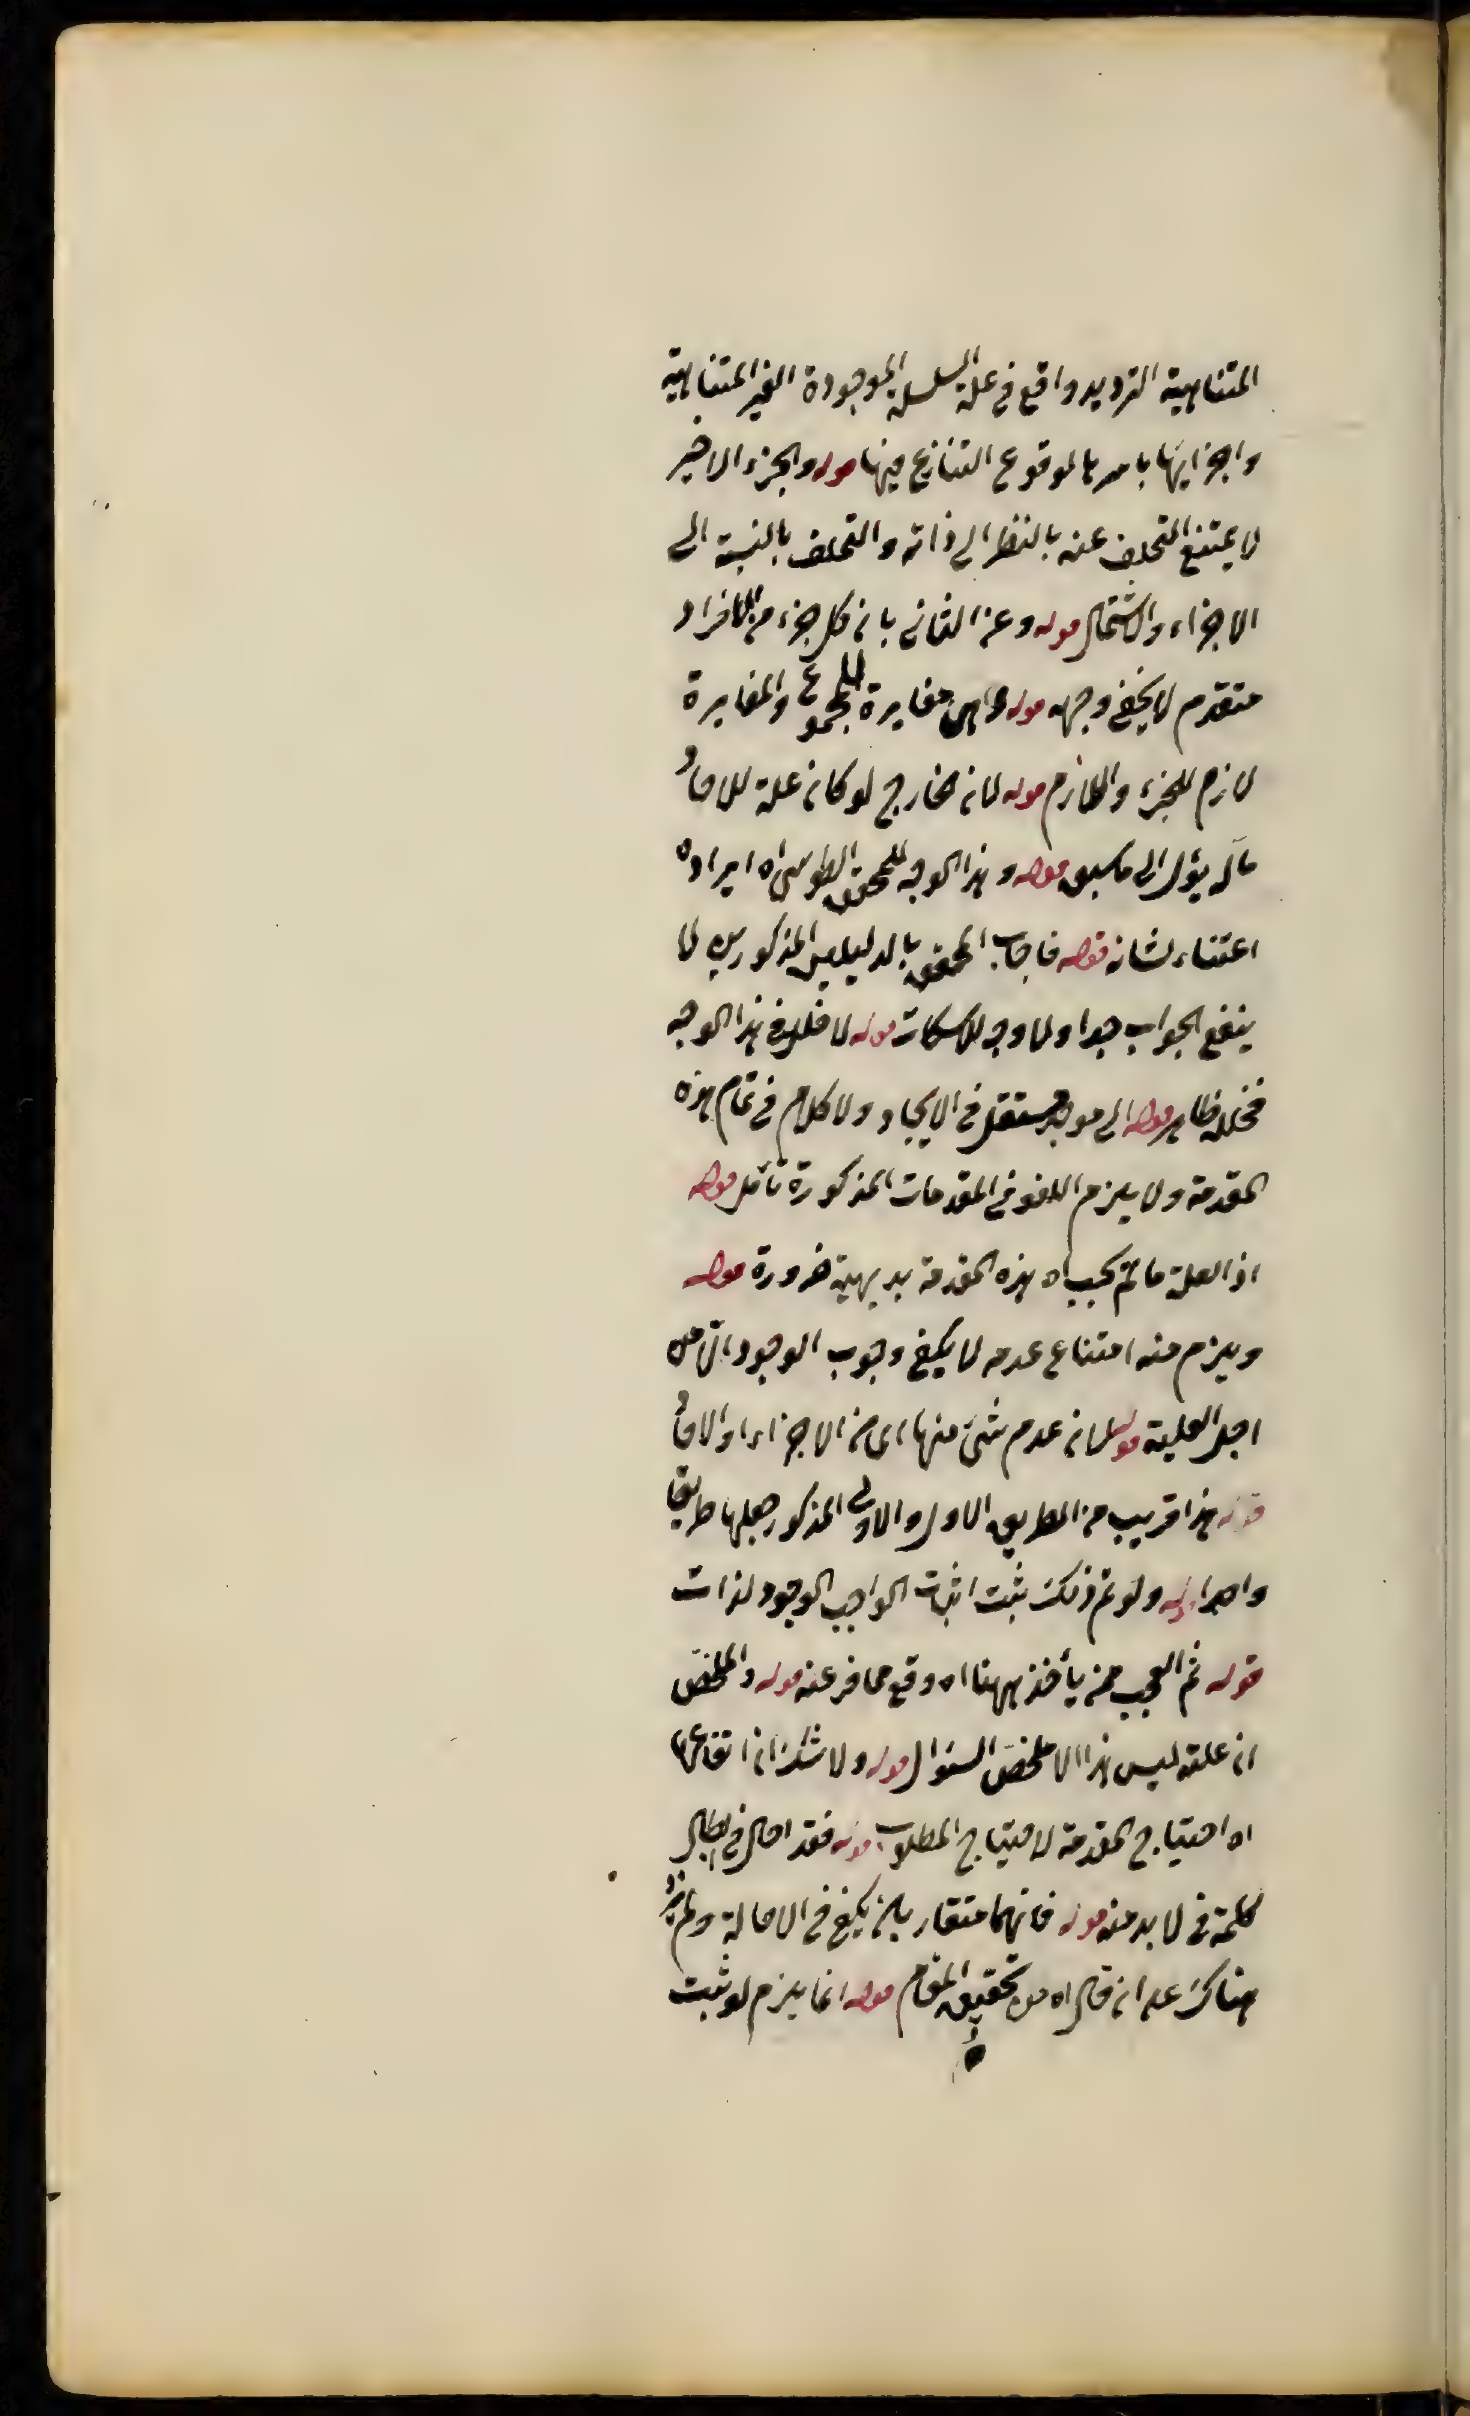 المتناهية الترديد واقع في علة السلسلة الموجودة الغير المتناهية
واجزايها باسرها لوقوع التنازع فيها قوله والجزء الاخير
لا يمتنع التخلف عنه بالنظر الى ذاته والتخلف بالنسبة الى
الاجزاء والاشتمال قوله وعن الثاني بان كل جزء من الافراد
متقدم لا يخفى وجهه قوله مغايرة للمجموع والمغايرة
لازم للجزء واللازم قوله لان الخارج لو كان علة للاحاد
مآله يؤل الى ما سبق قوله وهذا الوجه للمحقق الطوسي اه ايراده
اعتناء لشانه قوله فاجاب المحقق بالدليلين المذكورين لا
ينفع الجواب جدا ولا وجه للاسكات قوله لا خلل في هذا الوجه
فخلله ظاهر قوله الى موجد مستقل في الايجاد ولا كلام في تمام هذه
المقدمة ولا يلزم اللغو في المقدمات المذكورة تأمل قوله
اذ العلة ما لم يجب اه هذه المقدمة بديهية ضرورة قوله
ويلزم منه امتناع عدمه لا يكفي وجوب الوجود الناشي من
اجل العلية قوله لان عدم شئ منها اى من الاجزاء او الاحاد
قوله هذا قريب من الطريق الاول والاولى المذكور جعلها طريقا
واحدا قوله ولو تم ذلك ثبت اثبات الواجب الوجود لذاته
قوله ثم العجب ممن يأخذ ههنا اه وقع مما فر عنه قوله والملخص
ان علته ليس هذا الا ملخص السئوال قوله ولا شك ان انتفاء
اه احتياج المقدمة لاحتياج المطلوب قوله فقد احال في ابطال
كلمة في لا بد منه قوله فانهما متقاربان يكفي في الاحالة ولم يزد
هناك على ان قال اه من تحقيق المقام قوله انما يلزم لو ثبت